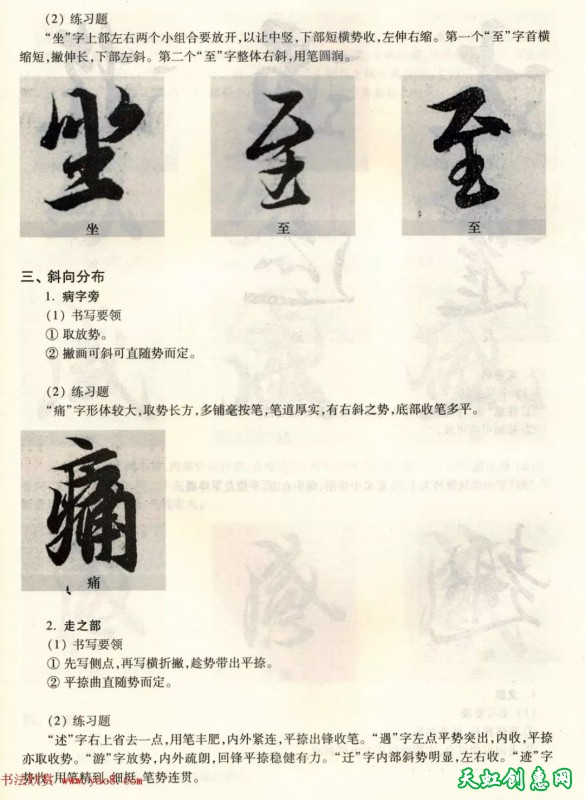 (2) 练习题
“坐”字上部左右两个小组合要放开,以让中竖,下部短横势收,左伸右缩。第一个“至”字首横
缩短,撇伸长,下部左斜。第二个“至”字整体右斜,用笔圆润。
坐
至
至
坐
至
至
三、斜向分布
1. 病字旁
(1) 书写要领
① 取放势。
② 撇画可斜可直随势而定。
(2) 练习题
“痛”字形体较大,取势长方,多铺毫按笔,笔道厚实,有右斜之势,底部收笔多平。
痛
痛
2. 走之部
(1) 书写要领
① 先写侧点,再写横折撇,趁势带出平捺。
② 平捺曲直随势而定。
(2) 练习题
“述”字右上省去一点,用笔丰肥,内外紧连,平捺出锋收笔。“遇”字左点平势突出,内收,平捺
亦取收势。“游”字放势,内外疏朗,回锋平捺稳健有力。“迁”字内部斜势明显,左右收。“迹”字
势收,用笔精到,细挺,笔势连贯。
书法欣赏 www.yac8.com
天虹创意网